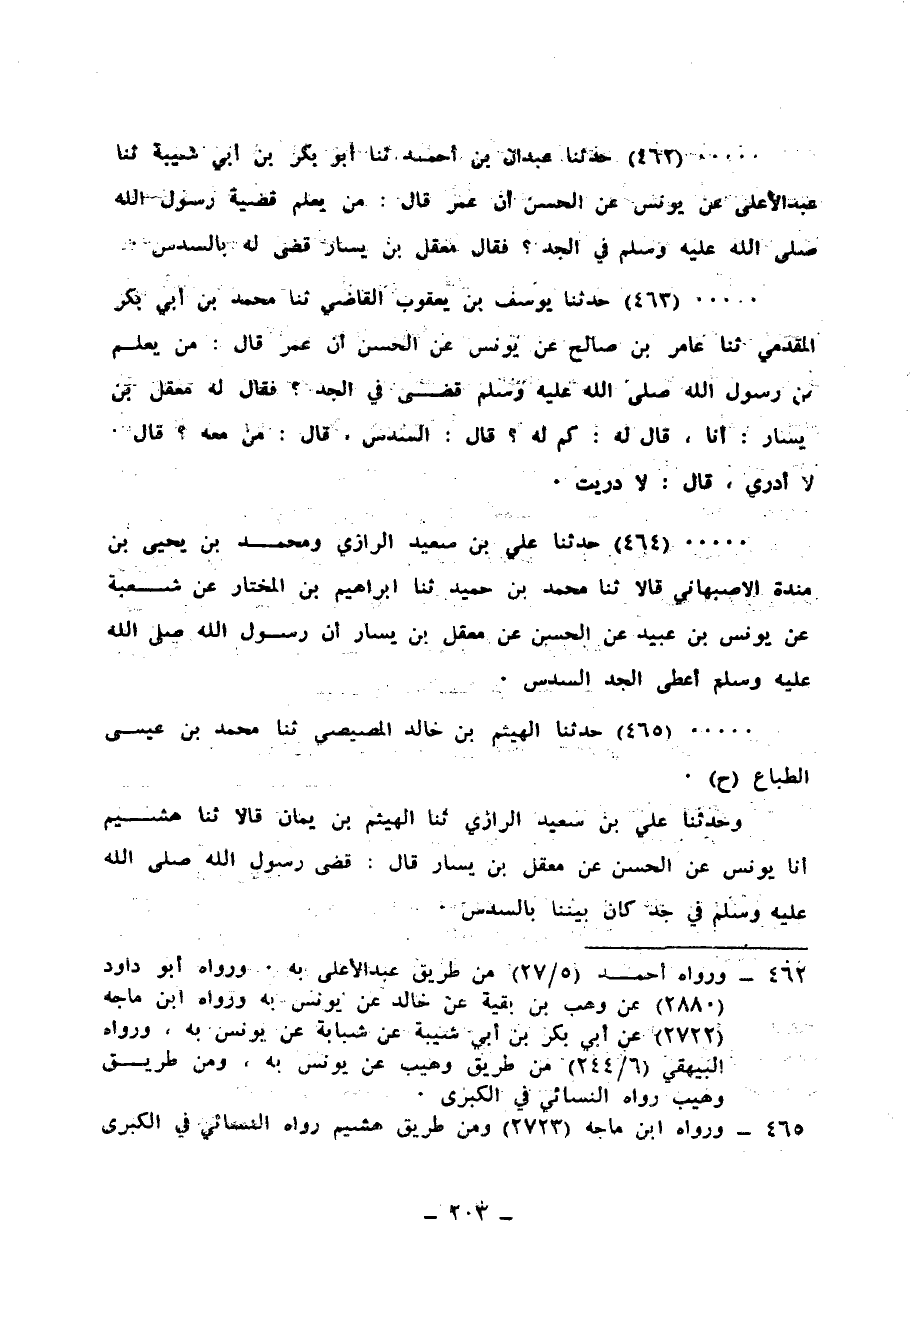 ٠٠٠٠٠ (٤٦٢) حدثنا عبدان بن أحمد ثنا أبو بكر بن أبي شيبة ثنا
عبدالأعلى عن يونس عن الحسن أن عمر قال : من يعلم قضية رسول الله
صلى الله عليه وسلم في الجد ؟ فقال معقل بن يسار قضى له بالسدس ٠
٠٠٠٠٠ (٤٦٣) حدثنا يوسف بن يعقوب القاضي ثنا محمد بن أبي بكر
المقدمي ثنا عامر بن صالح عن يونس عن الحسن أن عمر قال : من يعلم
من رسول الله صلى الله عليه وسلم قضى في الجد ؟ فقال له معقل بن
يسار : أنا ، قال له : كم له ؟ قال : السدس ، قال : من معه ؟ قال
لا أدري ، قال : لا دريت ٠
٠٠٠٠٠ (٤٦٤) حدثنا علي بن سعيد الرازي ومحمد بن يحيى بن
مندة الاصبهاني قالا ثنا محمد بن حميد ثنا ابراهيم بن المختار عن شعبة
عن يونس بن عبيد عن الحسن عن معقل بن يسار أن رسول الله صلى الله
عليه وسلم أعطى الجد السدس ٠
٠٠٠٠٠ (٤٦٥) حدثنا الهيثم بن خالد المصيصي ثنا محمد بن عيسى
الطباع (ح) ٠
وحدثنا علي بن سعيد الرازي ثنا الهيثم بن يمان قالا ثنا هشيم
أنا يونس عن الحسن عن معقل بن يسار قال : قضى رسول الله صلى الله
عليه وسلم في جد كان بيننا بالسدس ٠
٤٦٢ ــ ورواه أحمد (٢٧/٥) من طريق عبدالأعلى به ٠ ورواه أبو داود
(٢٨٨٠) عن وهب بن بقية عن خالد عن يونس به ورواه ابن ماجه
(٢٧٢٢) عن أبي بكر بن أبي شيبة عن شبابة عن يونس به ، ورواه
البيهقي (٢٤٤/٦) من طريق وهيب عن يونس به ، ومن طريق
وهيب رواه النسائي في الكبرى ٠
٤٦٥ ــ ورواه ابن ماجه (٢٧٢٣) ومن طريق هشيم رواه النسائي في الكبرى
ــ ٢٠٣ ــ